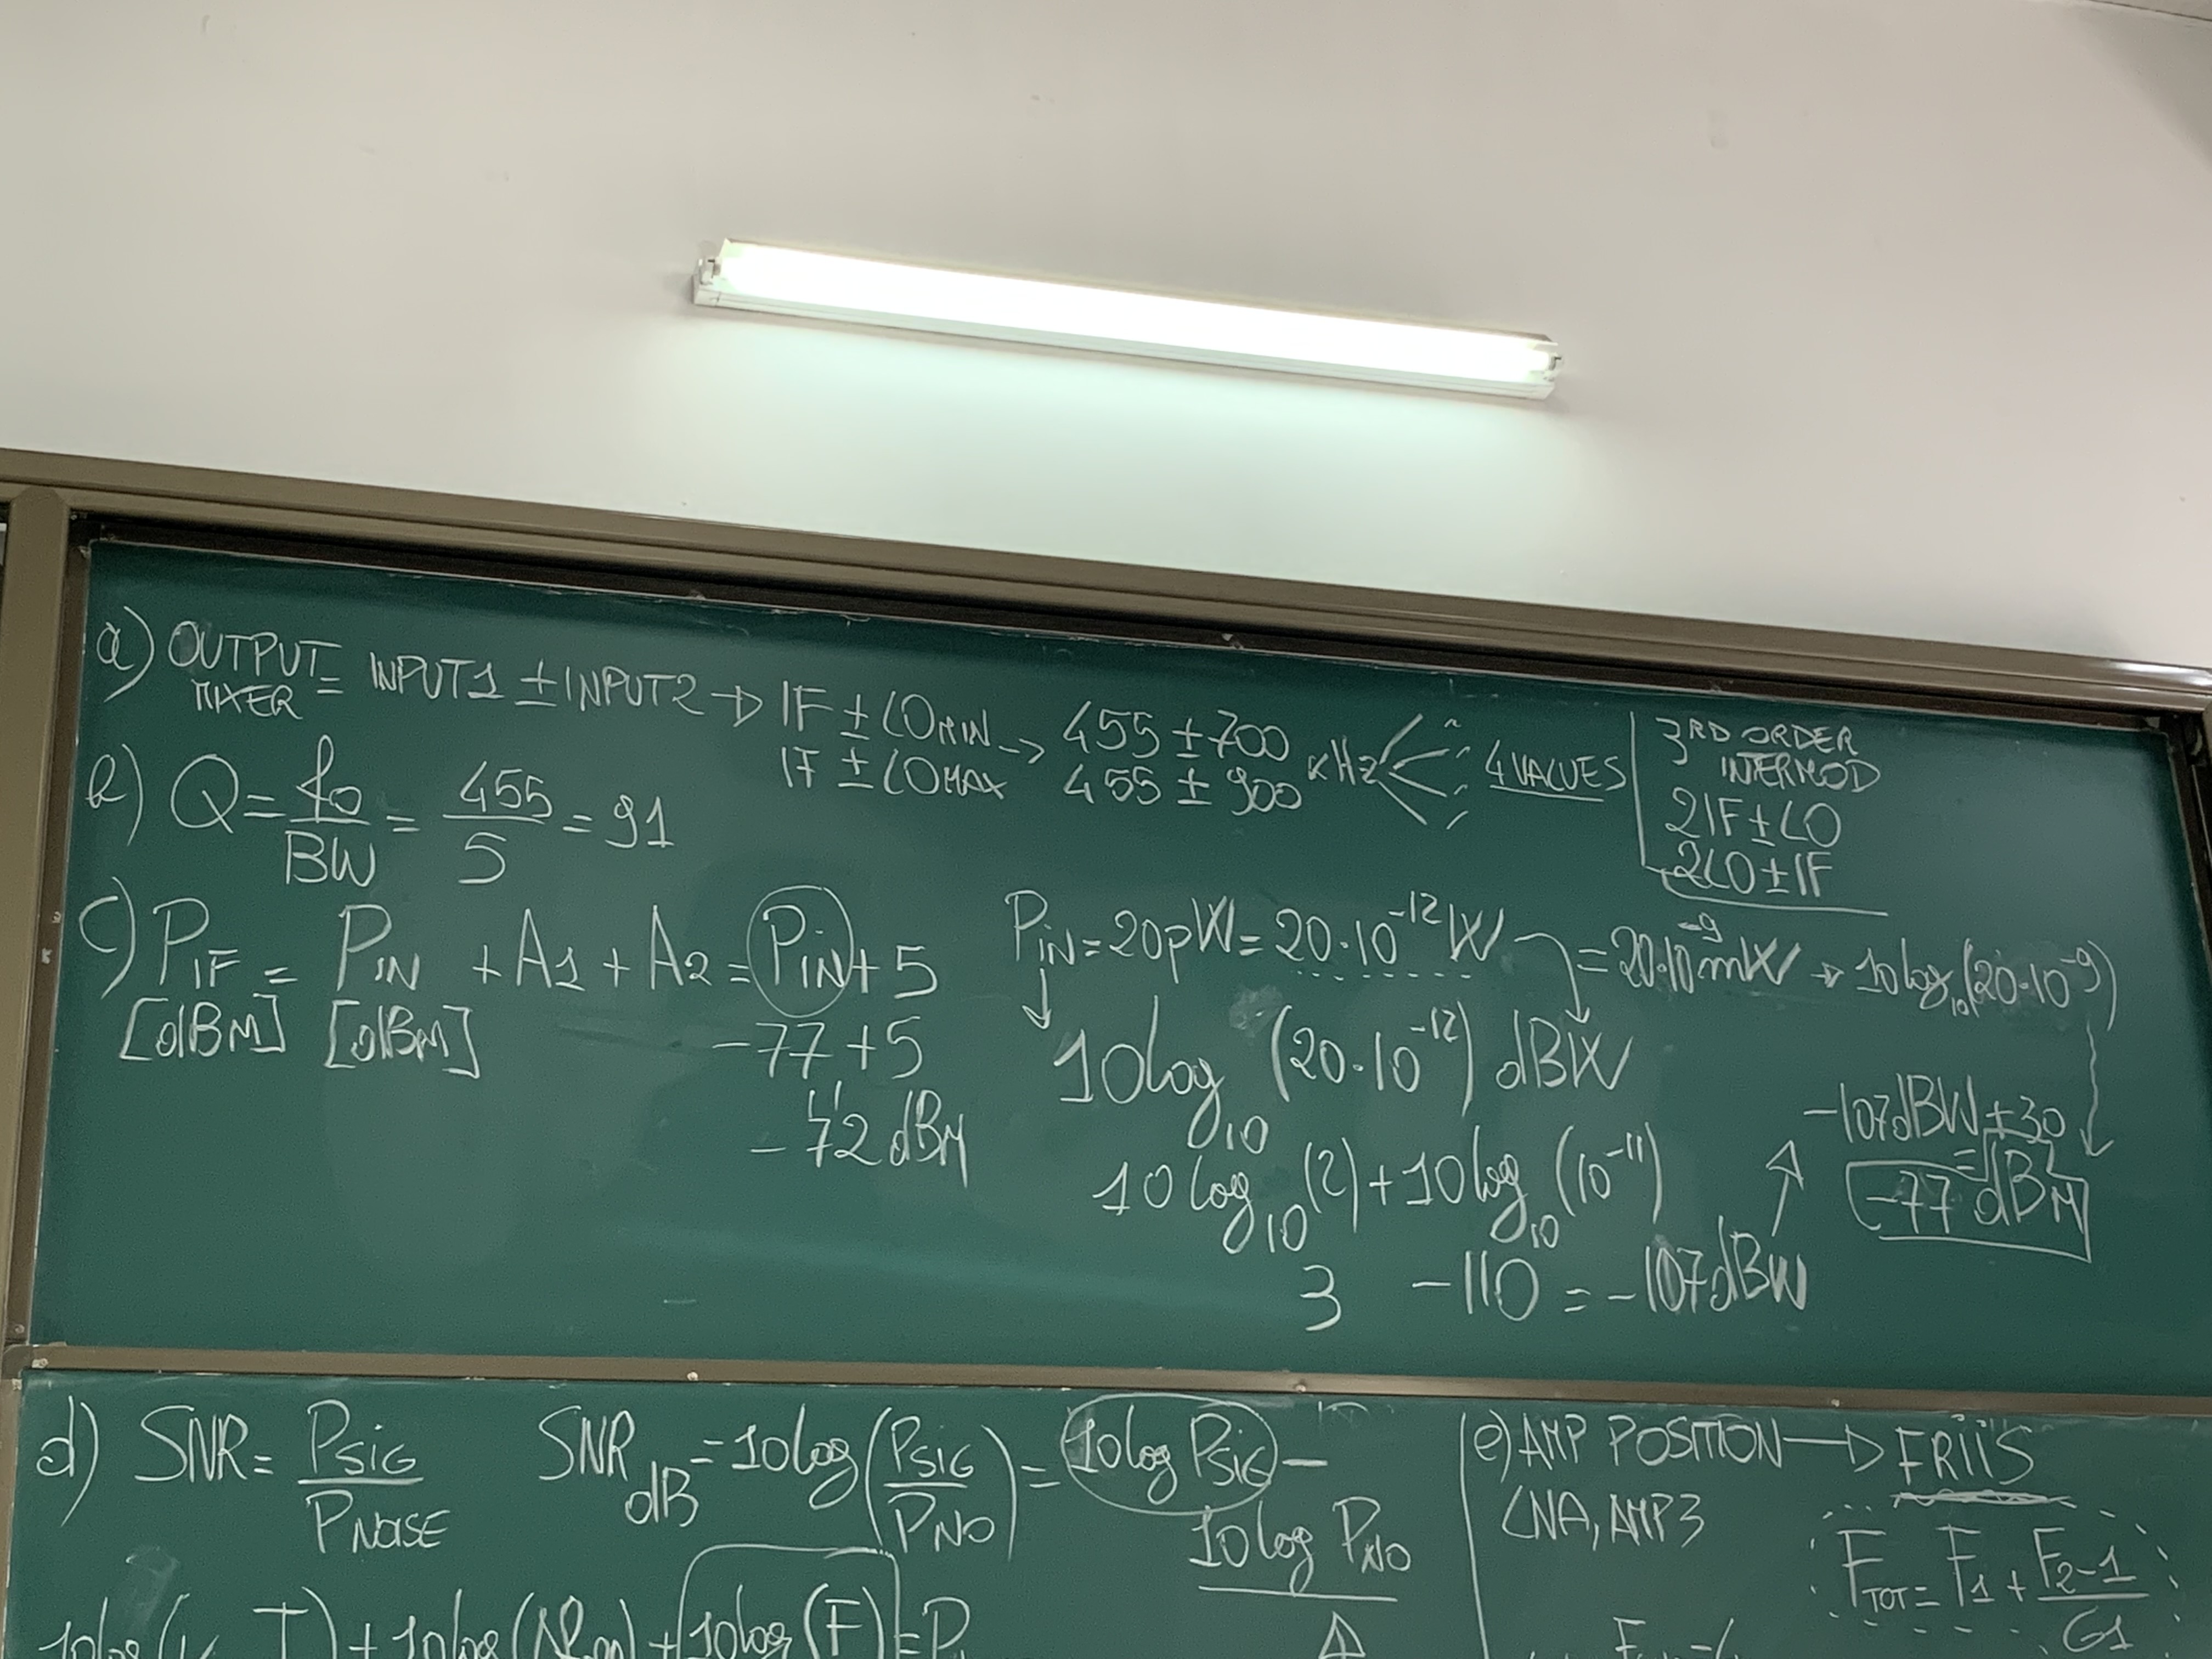 a) OUTPUT MIXER = INPUT1 ± INPUT2 → IF ± LOMIN → 455 ± 700
IF ± LOMAX 455 ± 900 KHz 4 VALUES
3RD ORDER
INTERMOD
2IF ± LO
2LO ± IF
b) Q = fo/BW = 455/5 = 91
c) PIF = PIN + A1 + A2 = PIN + 5
[dBM] [dBM] -77 + 5
-72 dBM
PIN = 20pW = 20·10^-12 W = 20·10^-9 mW → 10log10(20·10^-9)
10log10 (20·10^-12) dBW
10log10(2) + 10log10(10^-11)
3 -110 = -107dBW
-107dBW + 30
= -77 dBM
d) SNR = PSIG/PNOISE SNRdB = 10log(PSIG/PNO) = 10log PSIG -
10log PNO
+ 10log(F) =
e) AMP POSITION → FRIIS
LNA, AMP3
FTOT = F1 + F2-1/G1